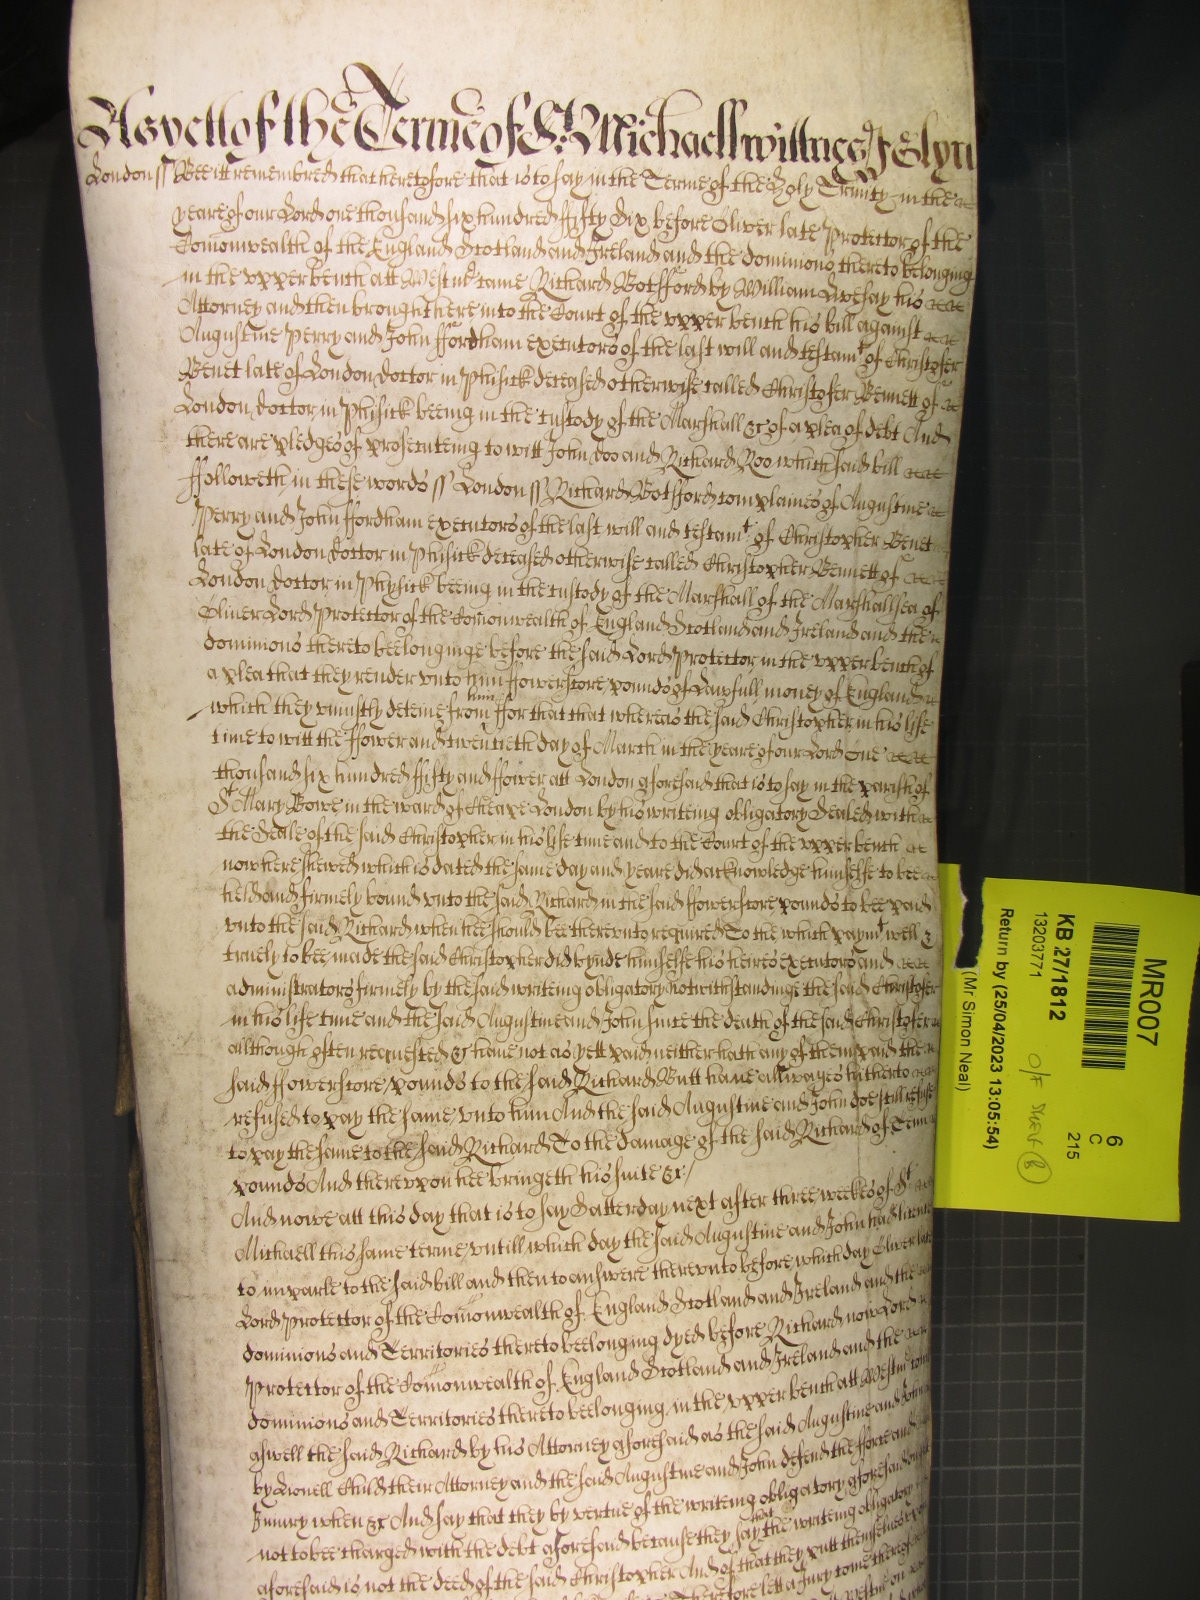 As yett of the Terme of St Michaell wittnes J Glyn
London ss Bee itt remembred that heretofore that is to say in the Terme of the Holy Trinity in the
yeare of our Lord one thousand six hundred ffifty Six before Oliver late Protector of the
Comonwealth of the England Scotland and Ireland and the dominions thereto belonging
in the vpper bench att Westmr came Richard Botsford by William Livesay his
Attorney and then brought here into the Court of the vpper bench his bill against
Augustine Perry and John ffordham executors of the last will and testamt of Christofer
Benet late of London Doctor in Phisick deceased otherwise called Christofer Bennett of
London doctor in Phisick beeing in the custody of the Marshall &c of a plea of debt And
there are pledges of prosecuteing to witt John Doo and Richard Roo which said bill
ffolloweth in these words ss London ss Richard Botsford complaines of Augustine
Perry and John ffordham executors of the last will and testamt of Christopher Benet
late of London doctor in Phisick deceased otherwise called Christopher Bennett of
London doctor in Physick beeing in the custody of the Marshall of the Marshallsea of
Oliver Lord Protector of the Comonwealth of England Scotland and Ireland and the
dominions thereto beelonginge before the said Lord Protector in the vpper bench of
a plea that they render vnto him ffowerscore pounds of Lawfull money of England
which they vniustly deteine from him ffor that that whereas the said Christopher in his life
time to witt the ffower and twentieth day of March in the yeare of our Lord One
thousand six hundred ffifty and ffower att London aforesaid that is to say in the parish of
St Mary Bowe in the ward of Cheape London by his writeing obligatory Sealed with
the Seale of the said Christopher in his life time and to the Court of the vpper bench
now here shewed which is dated the same day and yeare did acknowledge himselfe to bee
held and firmely bound vnto the said Richard in the said ffowerscore pounds to bee paid
vnto the said Richard when hee should bee therevnto required To the which paymt well &
truely to bee made the said Christopher did bynde himselfe his heires executors and
administrators firmely by the said writeing obligatory Notwithstandinge the said Christofer
in his life time and the said Augustine and John since the death of the said Christofer
although often requested &c have not as yett paid neither hath any of them paid the
said ffowerscore pounds to the said Richard Butt have allwayes hitherto
refused to pay the same vnto him And the said Augustine and John doe still refuse
to pay the same to the said Richard To the damage of the said Richard of Tenn
pounds And therevpon hee bringeth his suite &c /
And nowe att this day that is to say Satterday next after three weekes of St
Michaell this same terme vntill which day the said Augustine and John had licence
to imparle to the said bill and then to answere therevnto before which day Oliver late
Lord Protector of the Comonwealth of England Scotland and Ireland and the
dominions and Territories thereto beelonging dyed before Richard now Lord
Protector of the Comonwealth of England Scotland and Ireland and the
dominions and Territories thereto beelonging in the vpper bench att Westmr come
aswell the said Richard by his Attorney aforesaid as the said Augustine and John
by Lionell Child their Attorney and the said Augustine and John defend the fforce and
Iniury when &c And say that they by vertue of the writeing obligatory aforesaid ought
not to bee charged with the debt aforesaid because they say that the writeing obligatory
aforesaid is not the deed of the said Christopher And of that they putt themselves vpon
Therefore lett a Jury come thereof
MR007
6
C
215
KB 27/1812
13203771
O/F Shelf B
Return by (25/04/2023 13:05:54)
(Mr Simon Neal)